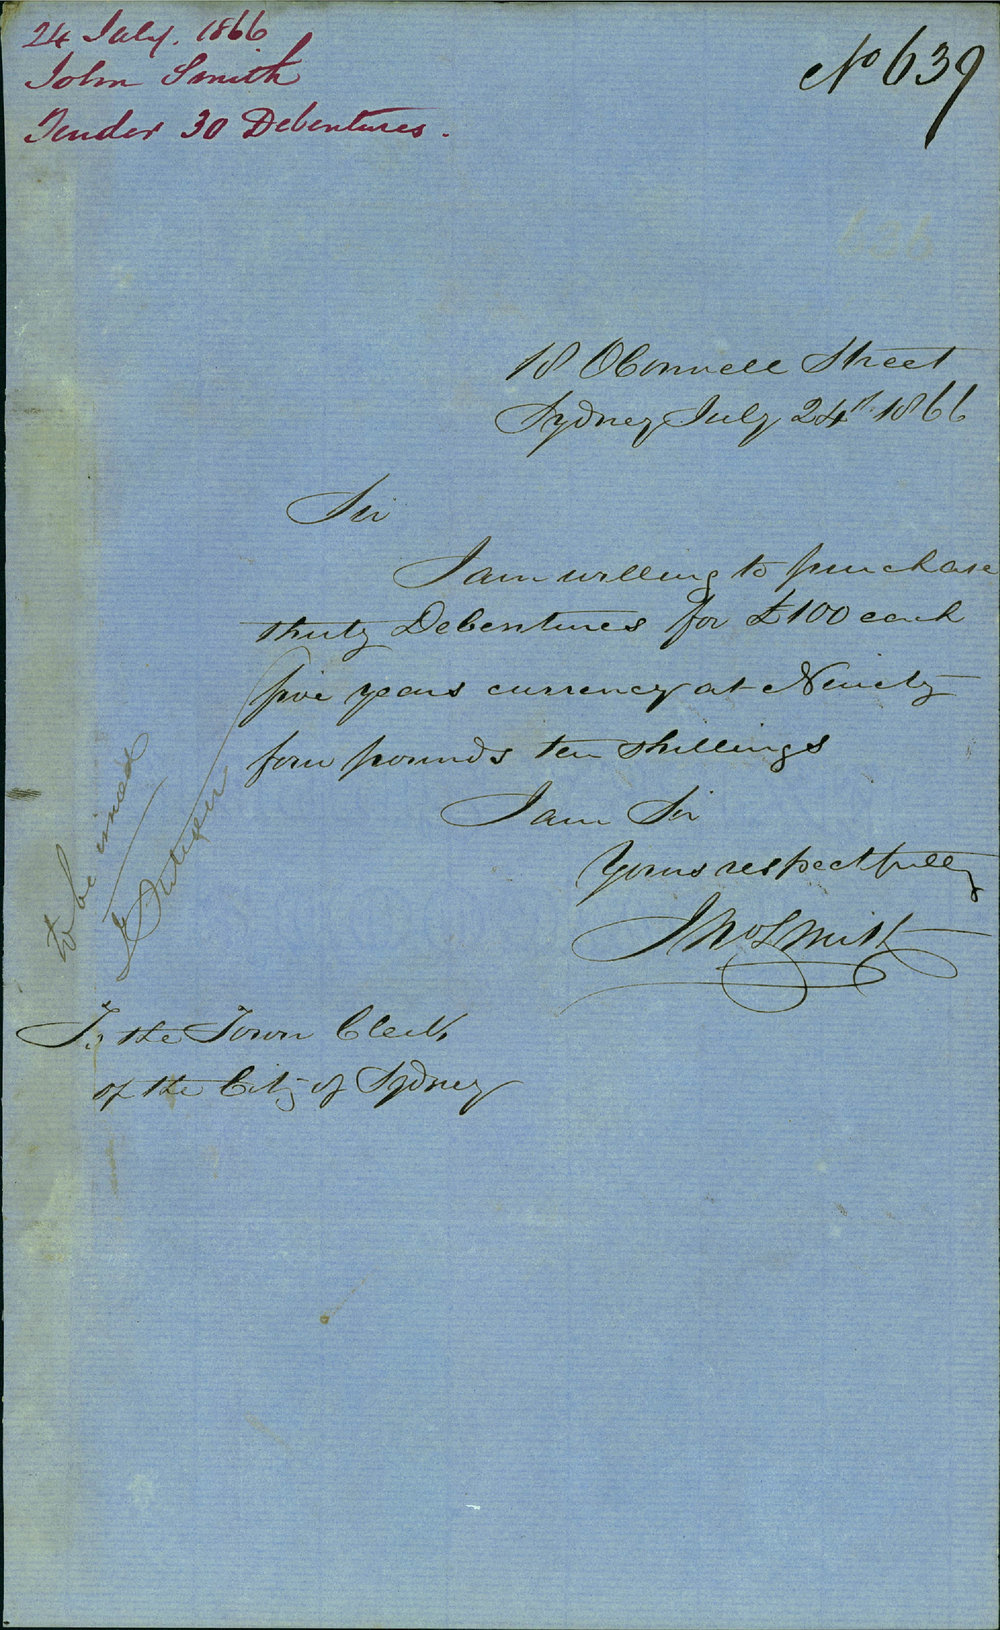 24 July. 1866
John Smith
Tender 30 Debentures.
No 639
636
18 OConnell Street
Sydney July 24th 1866
Sir
I am willing to purchase
thirty Debentures for £100 each
five years currency at Ninety
four pounds ten shillings
I am Sir
Yours respectfully
Jno Smith
to be
To the Town Clerk
of the City of Sydney